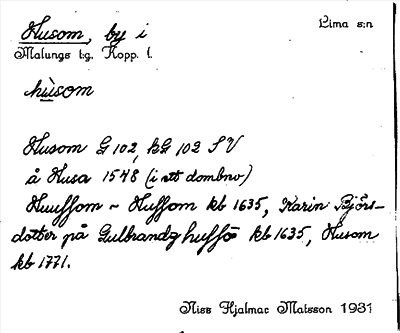 Husom, by i Lima s:n
Malungs t:g. Kopp. l.
hùsom
Husom G 102, kG 102 SV
å Husa 1548 (i ett dombrev)
Huussom ~ Hussom kb 1635, Karin Björs-
dotter på Gulbrandz hussō kb 1635, Husom
kb 1771.
Niss Hjalmar Matsson 1931